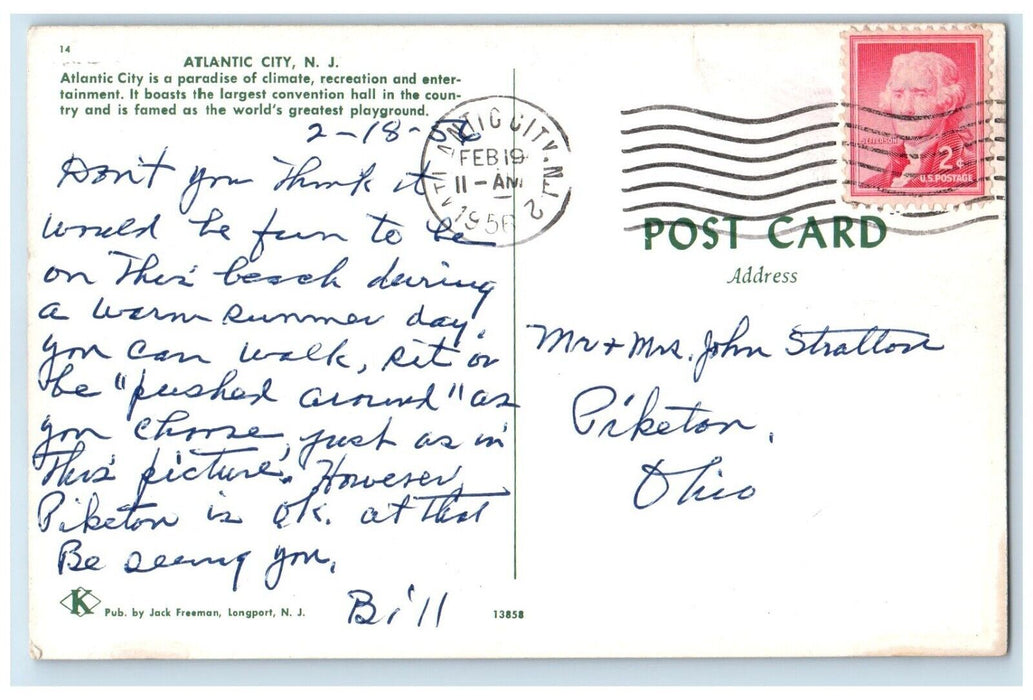 14
ATLANTIC CITY, N. J.
Atlantic City is a paradise of climate, recreation and enter-
tainment. It boasts the largest convention hall in the coun-
try and is famed as the world's greatest playground.
2-18-56
Don't you think it
would be fun to be
on this beach during
a warm summer day.
you can walk, sit or
be "pushed around" as
you choose, just as in
this picture. However,
Piketon is OK. at that
Be seeing you,
Bill
K
Pub. by Jack Freeman, Longport, N. J.
13858
ATLANTIC CITY, N.J.
FEB 19
11 - AM
1956
2
JEFFERSON
2¢
U.S. POSTAGE
POST CARD
Address
Mr + Mrs. John Stratton
Piketon,
Ohio